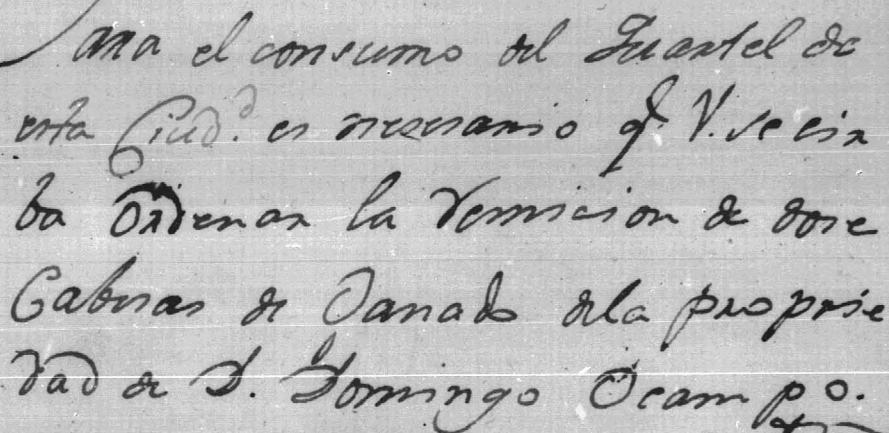 Para el consumo del Quartel de
esta Ciud.d es nesesario q.e V. se cir
ba Ordenar la remicion de dose
Cabesas de Ganado dela proprie
dad de D. Domingo Ocampo.